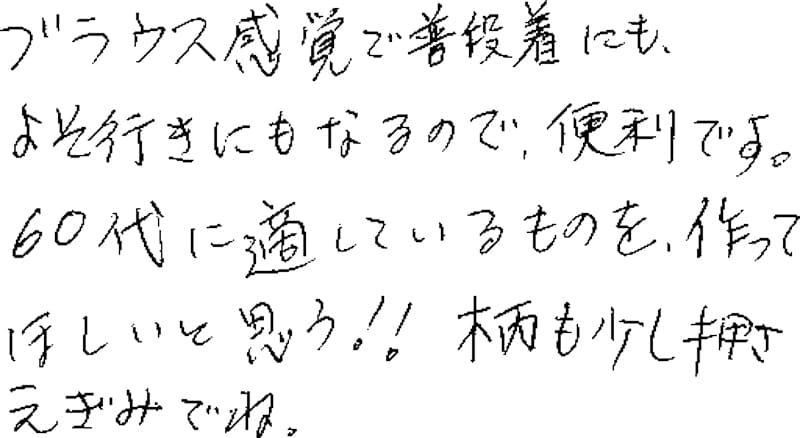 ブラウス感覚で普段着にも、
よそ行きにもなるので、便利です。
60代に適しているものを、作って
ほしいと思う!! 柄も少し押さ
えぎみでね。